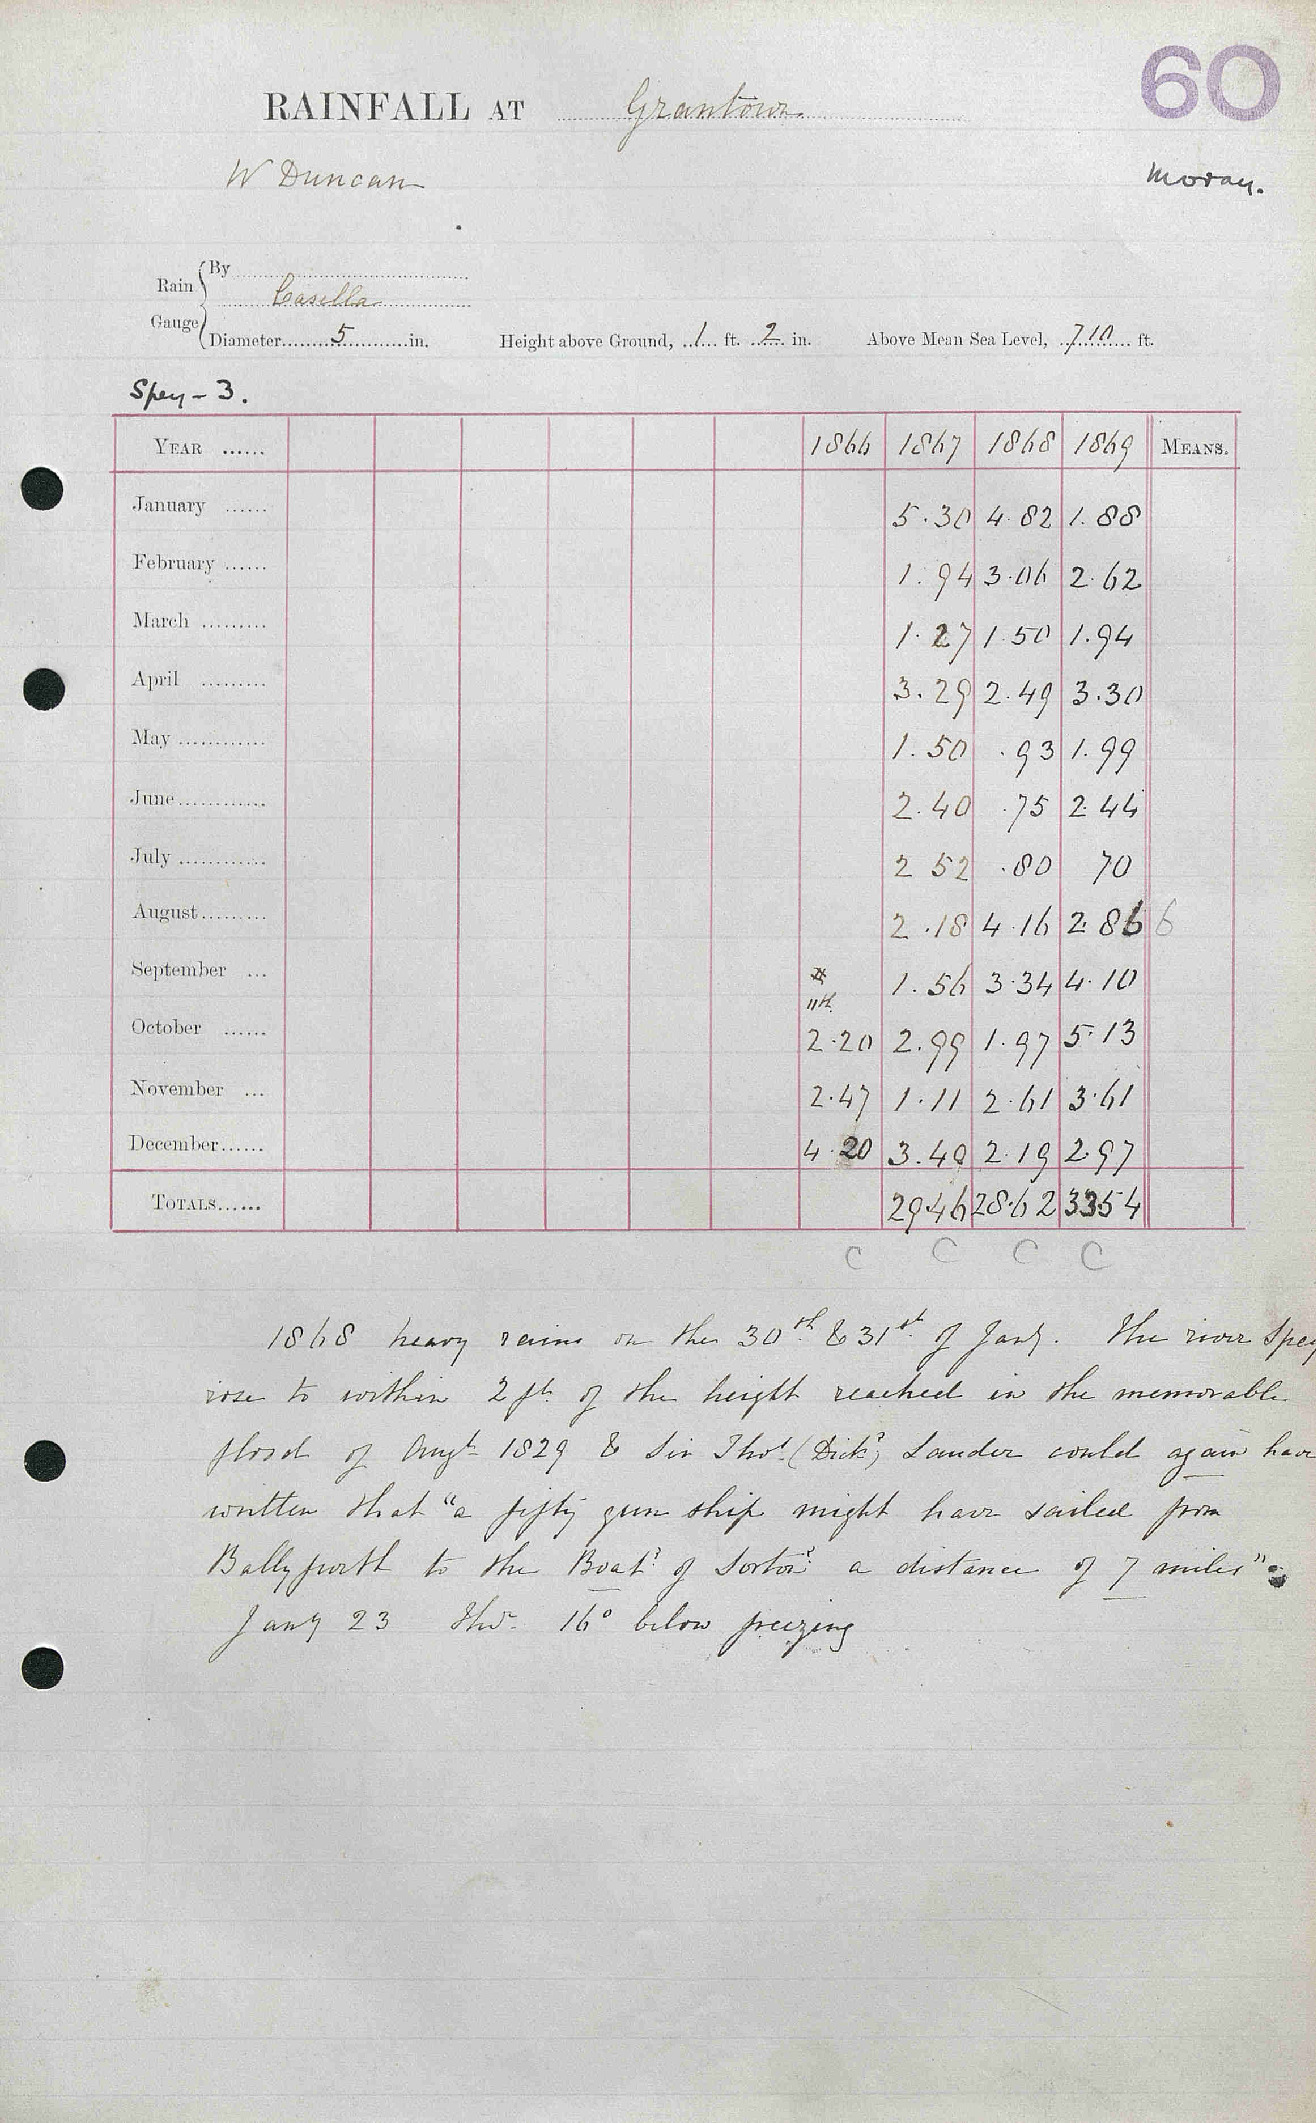 60
RAINFALL AT Grantown.
W Duncan
Moray.
Rain Gauge
By
Casella
Diameter 5 in. Height above Ground, 1 ft. 2 in. Above Mean Sea Level, 710 ft.
Spey - 3.
YEAR ...... 1866 1867 1868 1869 MEANS.
January ...... 5.30 4.82 1.88
February ...... 1.94 3.06 2.62
March ......... 1.27 1.50 1.94
April ......... 3.29 2.49 3.30
May ............ 1.50 .93 1.99
June ............ 2.40 .75 2.44
July ............ 2 52 .80 70
August ......... 2.18 4.16 2.86 6
September ... 1.56 3.34 4.10
11th
October ...... 2.20 2.99 1.97 5.13
November ... 2.47 1.11 2.61 3.61
December ...... 4.20 3.40 2.19 2.97
TOTALS ...... 29.46 28.62 3354
C C C C
1868 heavy rains on the 30th & 31st of Jany. The river Spey
rose to within 2 ft. of the height reached in the memorable
flood of Augt 1829 & Sir Thos. (Dick?) Lauder could again have
written that "a fifty gun ship might have sailed from
Ballyforth to the Boat? of a distance of 7 miles".
Jany 23 16° below freezing